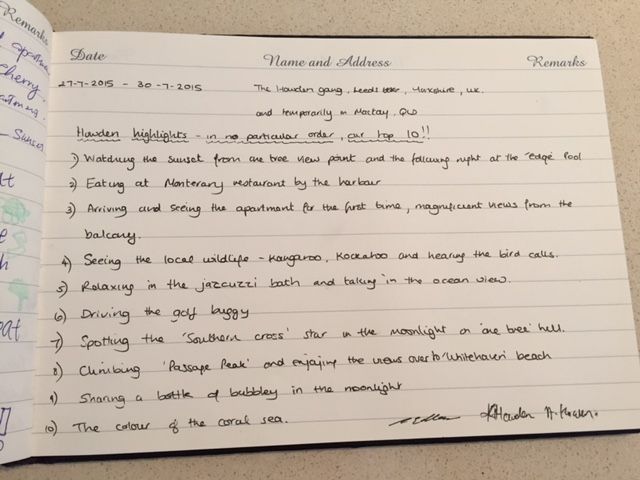 Remarks
apartme
cherry.
- Sunset
Date Name and Address Remarks
27-7-2015 - 30-7-2015 The Howden gang, Leeds, Yorkshire, UK.
and temporarily in Mackay, QLD
Howden highlights - in no particular order, our top 10!!
1) Watching the sunset from one tree view point and the following night at the 'edge' Pool
2) Eating at Monterary restaurant by the harbour
3) Arriving and seeing the apartment for the first time, magnificent views from the
balcony.
4) Seeing the local wildlife - Kangaroo, Kockatoo and hearing the bird calls.
5) Relaxing in the jazcuzzi bath and taking in the ocean view.
6) Driving the golf buggy
7) Spotting the 'Southern Cross' star in the moonlight on 'one tree' hill.
8) Climbing 'Passage Peak' and enjoying the views over to 'Whitehaven' beach
9) Sharing a bottle of bubbley in the moonlight
10) The colour of the coral sea.
Howden